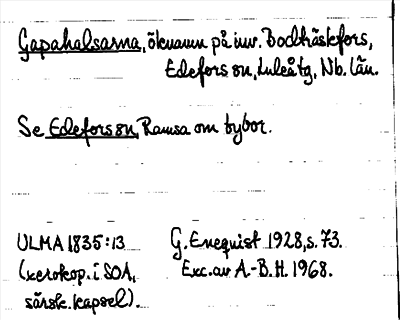 Gapahalsarna, öknamn på inv. Bodträskfors,
Edefors sn, Luleå tg, Nb. län.
Se Edefors sn, Ramsa om bybor.
ULMA 1835:13 G. Enequist 1928, s. 73.
(xerokop. i SOA, Exc. av A.-B. H. 1968.
särsk. kapsel).